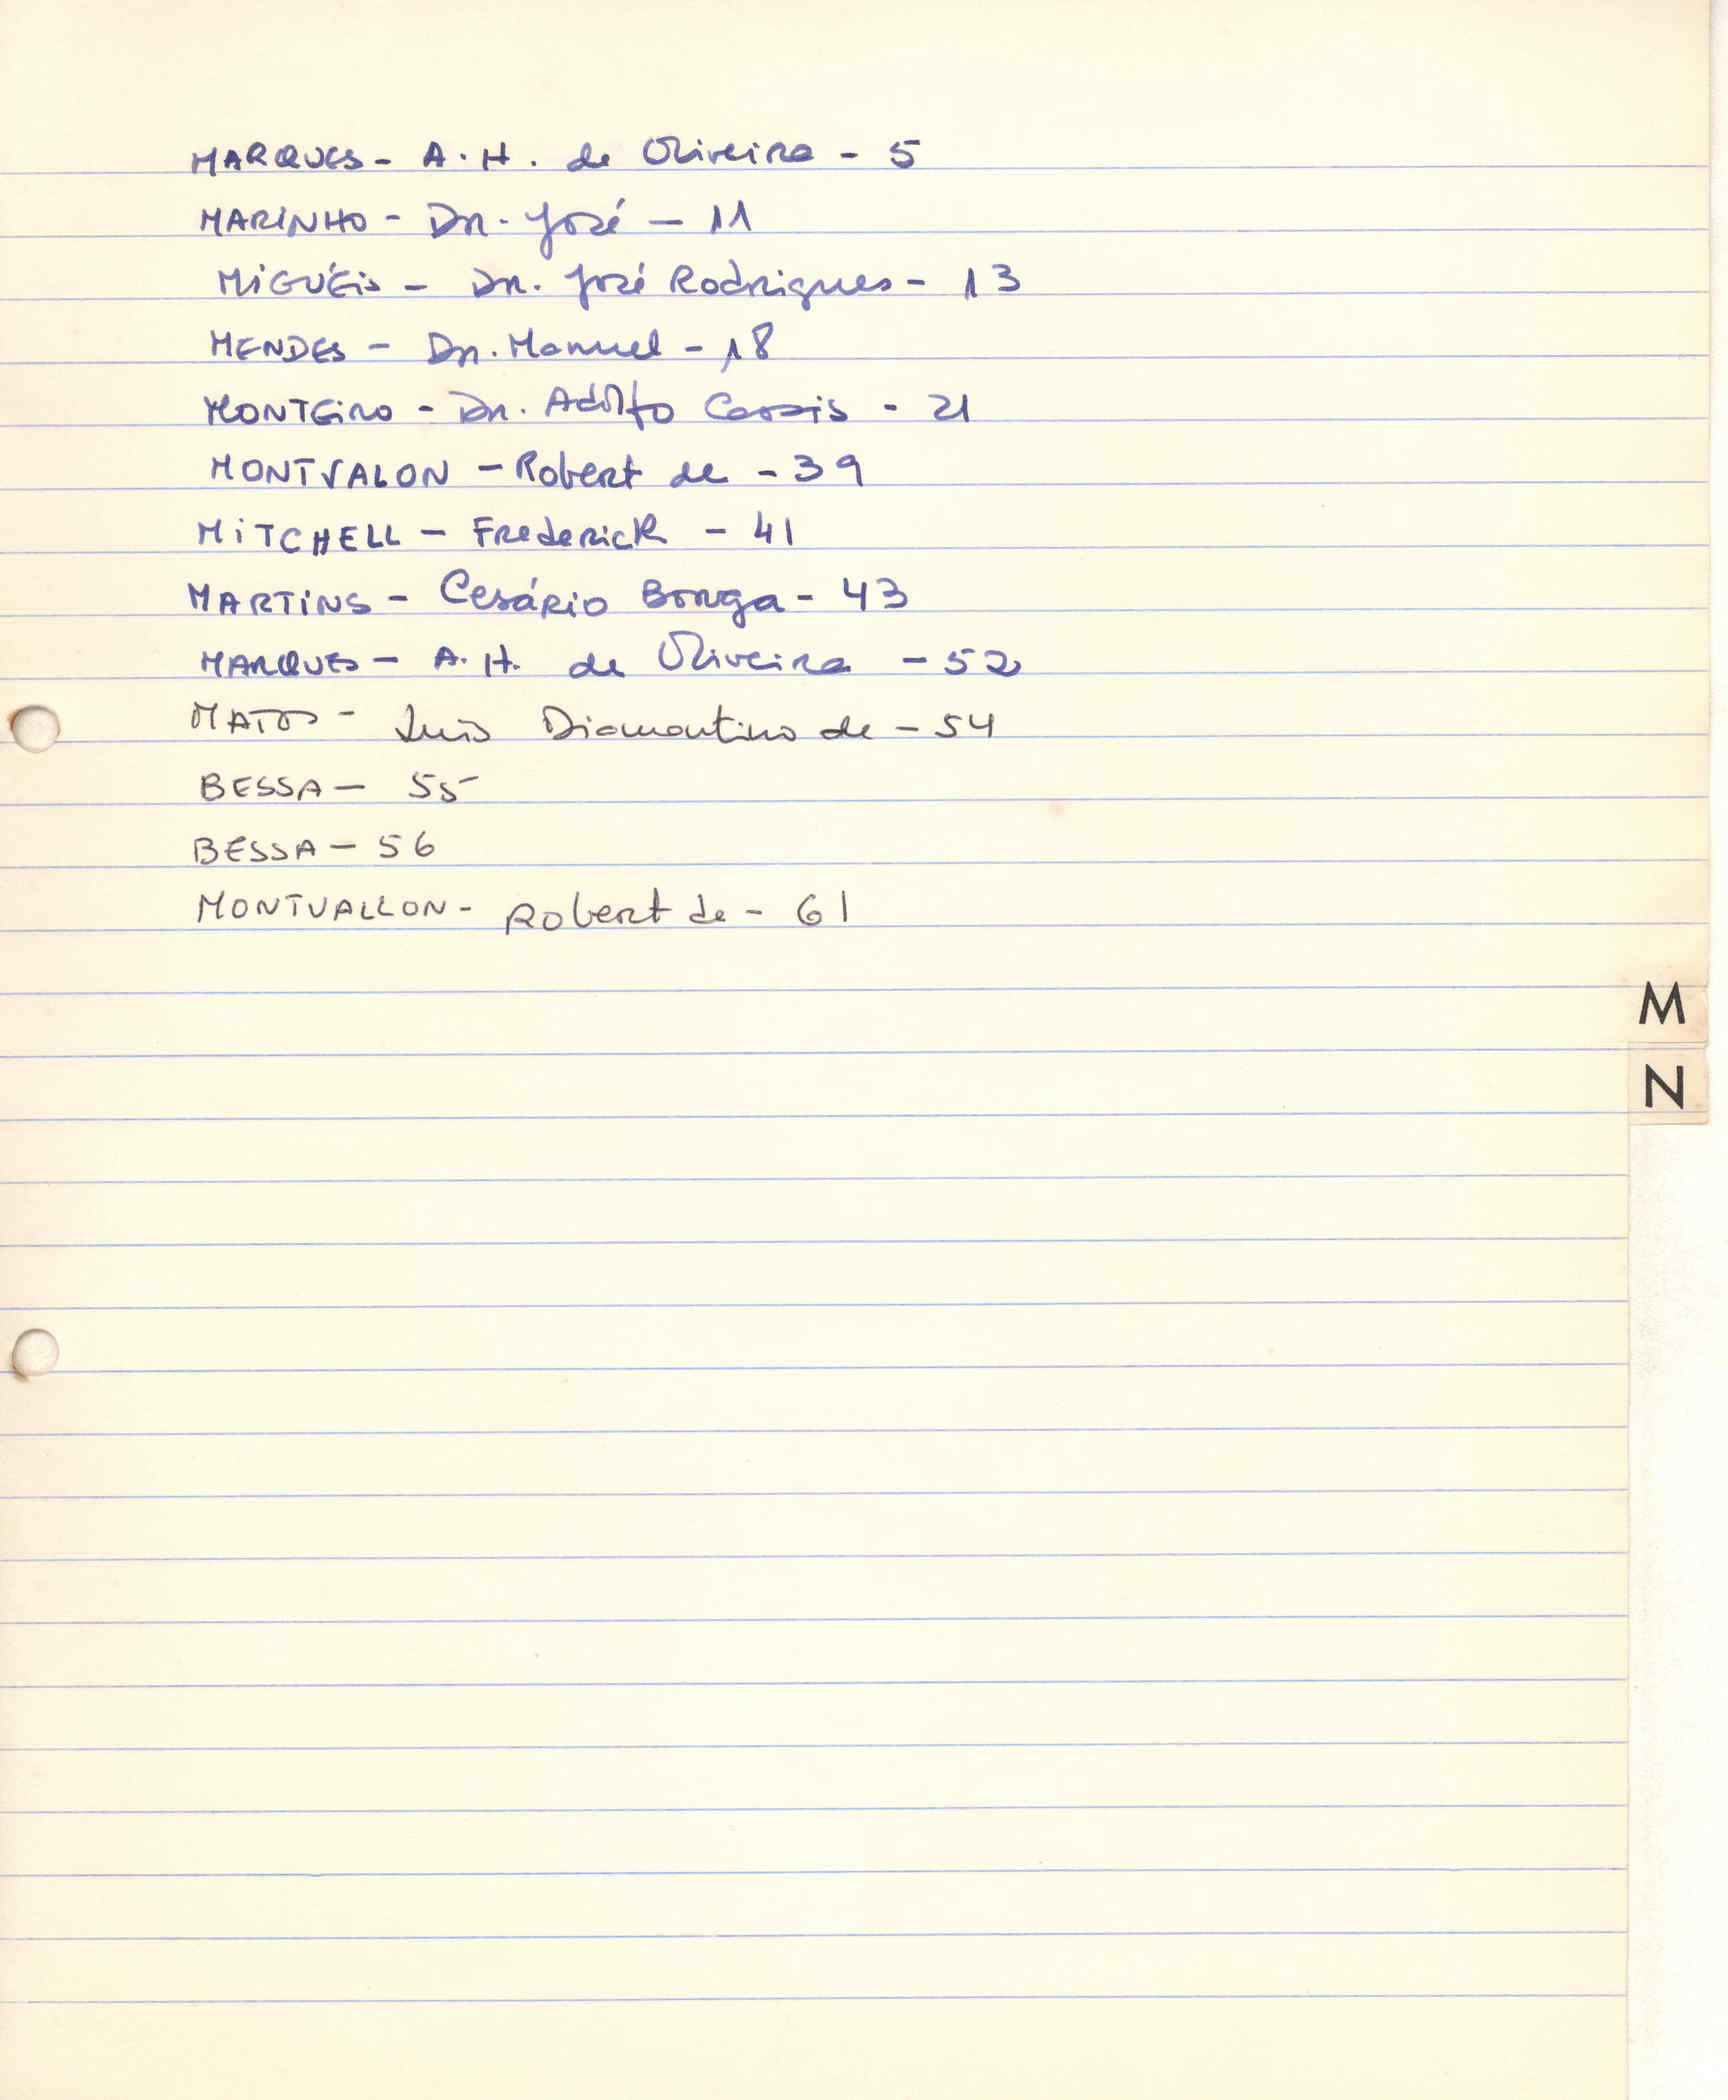 MARQUES - A. H. de Oliveira - 5
MARINHO - Dr. José - 11
MIGUÉIS - Dr. José Rodrigues - 13
MENDES - Dr. Manuel - 18
MONTEIRO - Dr. Adolfo Casais - 21
MONTVALON - Robert de - 39
MITCHELL - Frederick - 41
MARTINS - Cesário Borga - 43
MARQUES - A. H. de Oliveira - 52
MATOS - Luís Diamantino de - 54
BESSA - 55
BESSA - 56
MONTVALLON - Robert de - 61
M
N